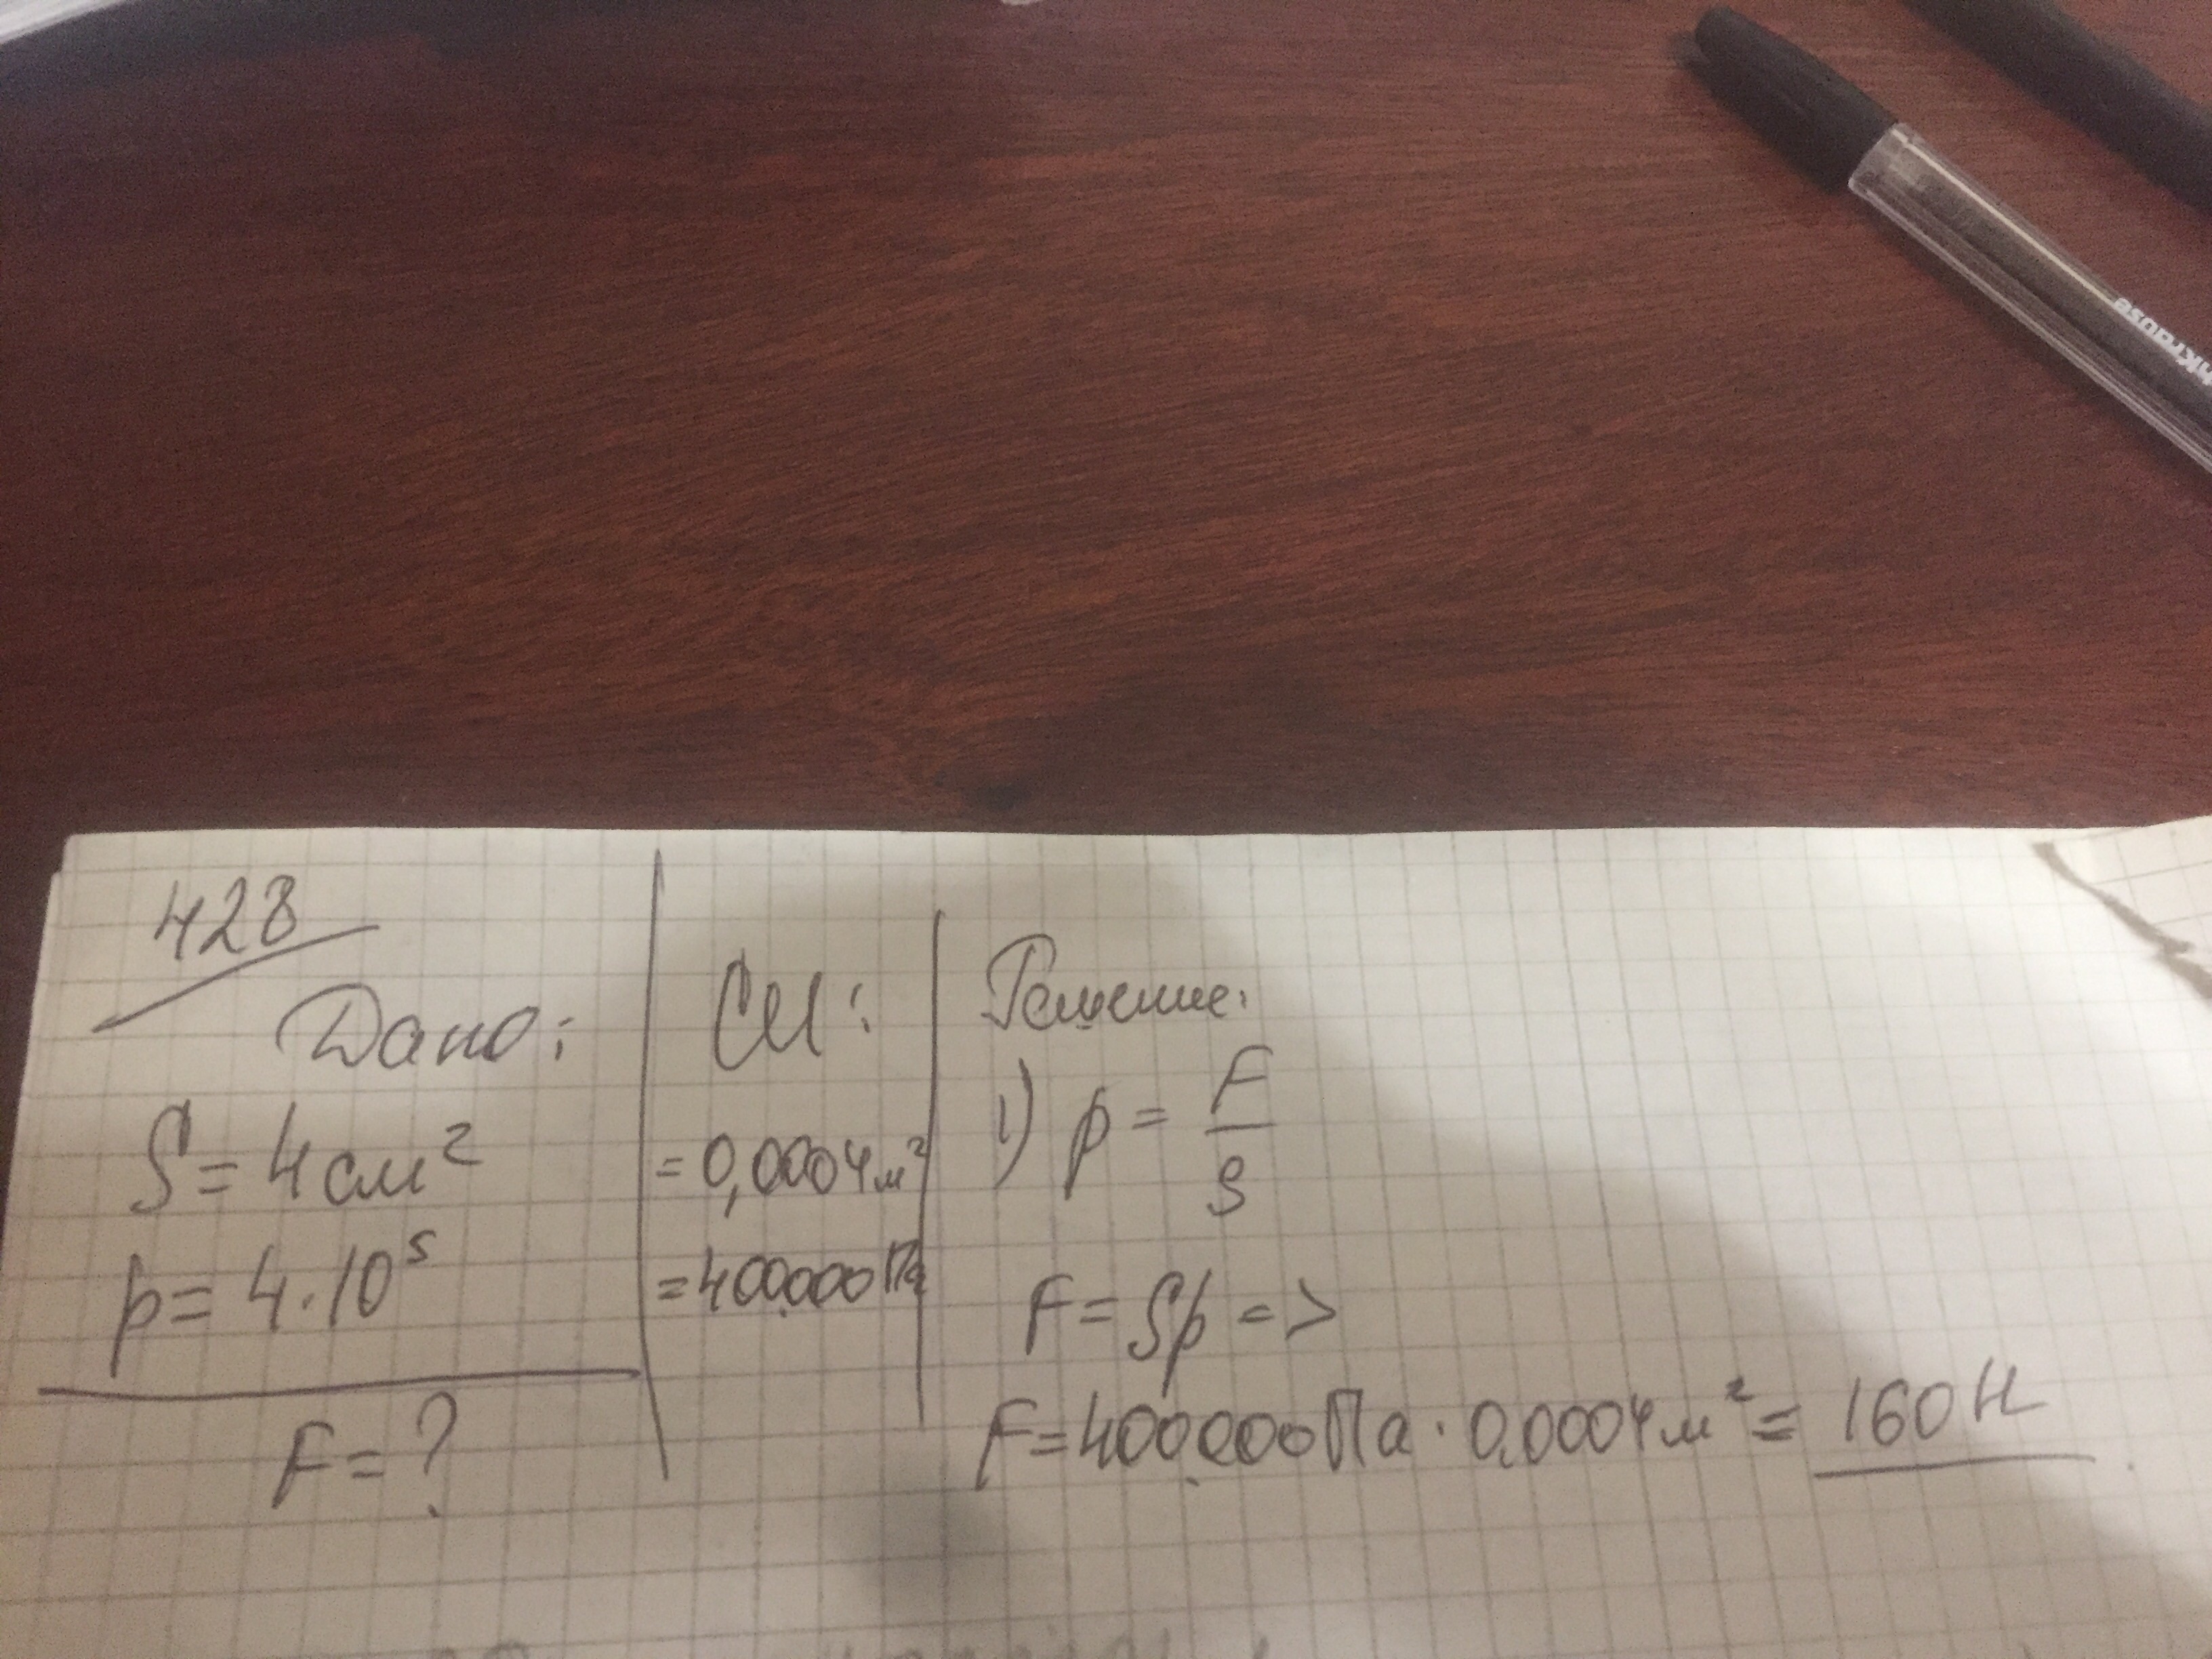 428
Дано:
S = 4 см²
p = 4·10⁵
F = ?
СИ:
= 0,0004 м²
= 400.000 Па
Решение:
1) p = F/S
F = Sp =>
F = 400.000 Па · 0,0004 м² = 160 Н
Krause